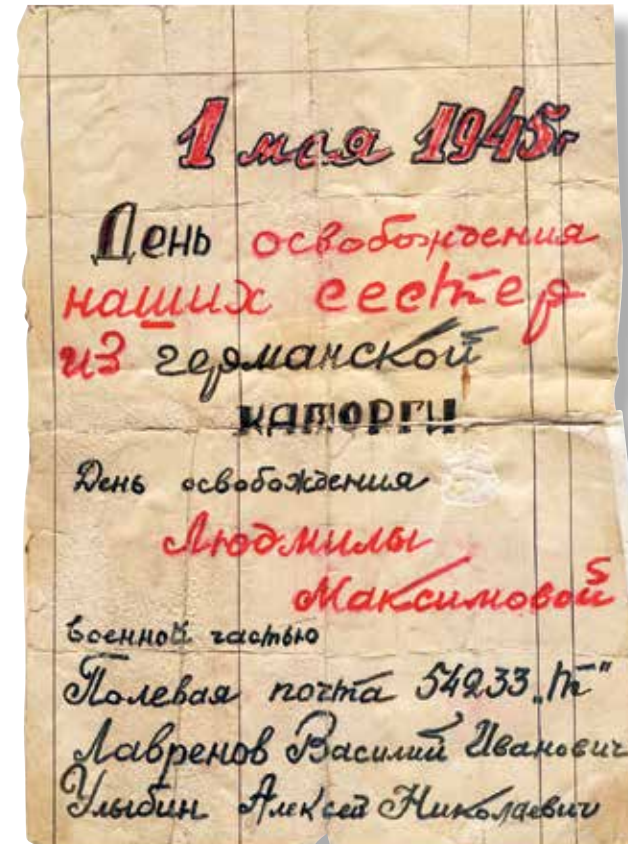 1 мая 1945г
День освобождения
наших сестер
из германской
каторги
День освобождения
Людмилы
Максимовой
военной частью
Полевая почта 54233 „т"
Лавренов Василий Иванович
Улыбин Алексей Николаевич